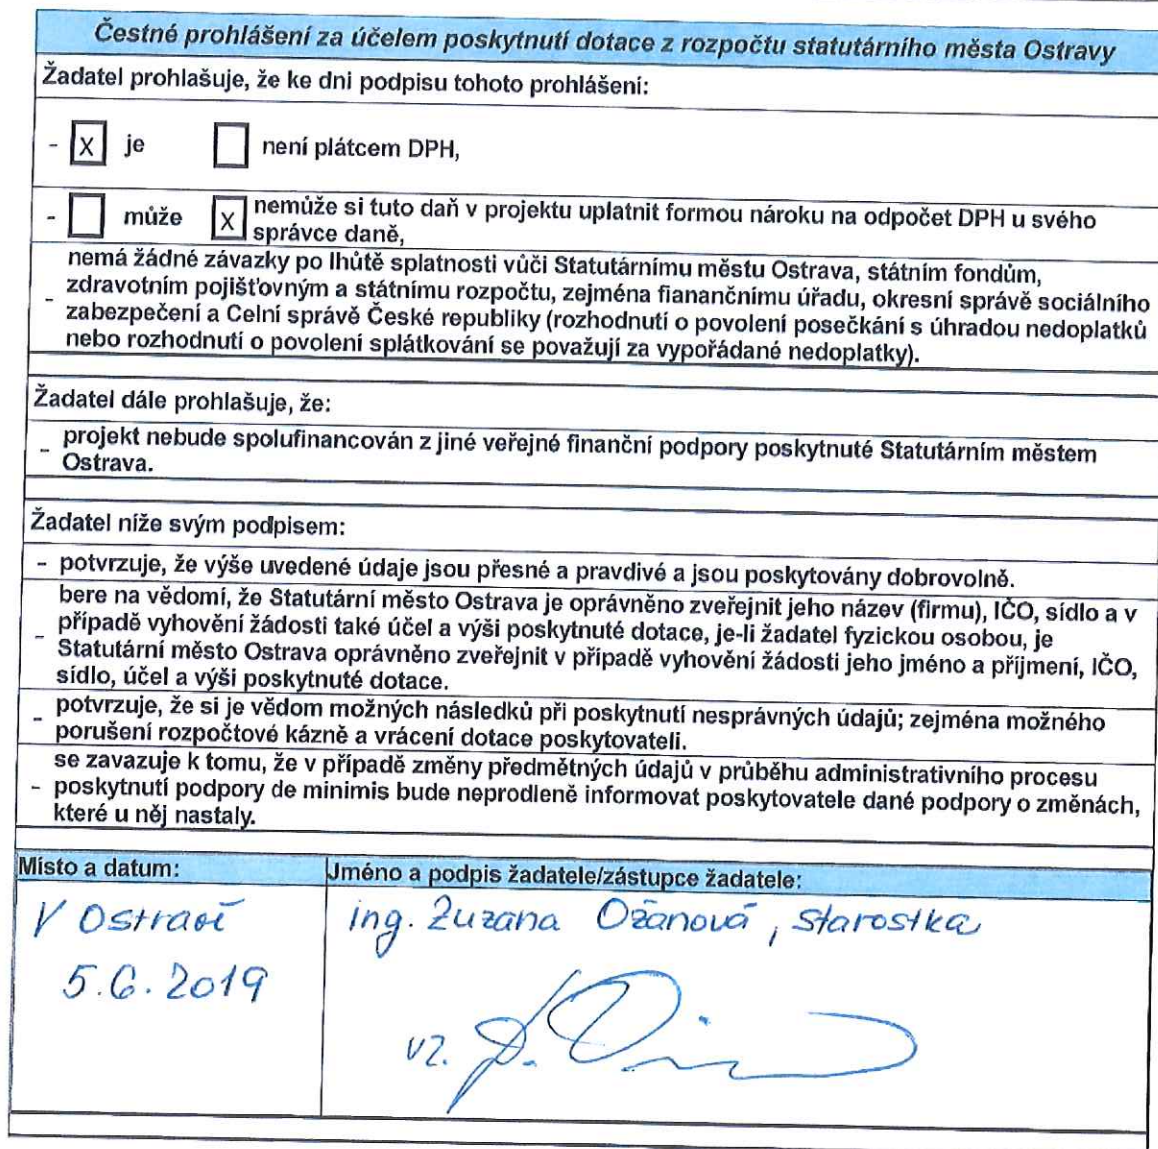 Čestné prohlášení za účelem poskytnutí dotace z rozpočtu statutárního města Ostravy
Žadatel prohlašuje, že ke dni podpisu tohoto prohlášení:
- X je není plátcem DPH,
- může X nemůže si tuto daň v projektu uplatnit formou nároku na odpočet DPH u svého
správce daně,
nemá žádné závazky po lhůtě splatnosti vůči Statutárnímu městu Ostrava, státním fondům,
- zdravotním pojišťovným a státnímu rozpočtu, zejména fianančnímu úřadu, okresní správě sociálního
zabezpečení a Celní správě České republiky (rozhodnutí o povolení posečkání s úhradou nedoplatků
nebo rozhodnutí o povolení splátkování se považují za vypořádané nedoplatky).
Žadatel dále prohlašuje, že:
- projekt nebude spolufinancován z jiné veřejné finanční podpory poskytnuté Statutárním městem
Ostrava.
Žadatel níže svým podpisem:
- potvrzuje, že výše uvedené údaje jsou přesné a pravdivé a jsou poskytovány dobrovolně.
bere na vědomí, že Statutární město Ostrava je oprávněno zveřejnit jeho název (firmu), IČO, sídlo a v
- případě vyhovění žádosti také účel a výši poskytnuté dotace, je-li žadatel fyzickou osobou, je
Statutární město Ostrava oprávněno zveřejnit v případě vyhovění žádosti jeho jméno a příjmení, IČO,
sídlo, účel a výši poskytnuté dotace.
- potvrzuje, že si je vědom možných následků při poskytnutí nesprávných údajů; zejména možného
porušení rozpočtové kázně a vrácení dotace poskytovateli.
se zavazuje k tomu, že v případě změny předmětných údajů v průběhu administrativního procesu
- poskytnutí podpory de minimis bude neprodleně informovat poskytovatele dané podpory o změnách,
které u něj nastaly.
Místo a datum:
Jméno a podpis žadatele/zástupce žadatele:
V Ostravě
5.6.2019
ing. Zuzana Ožanová, starostka
vz.